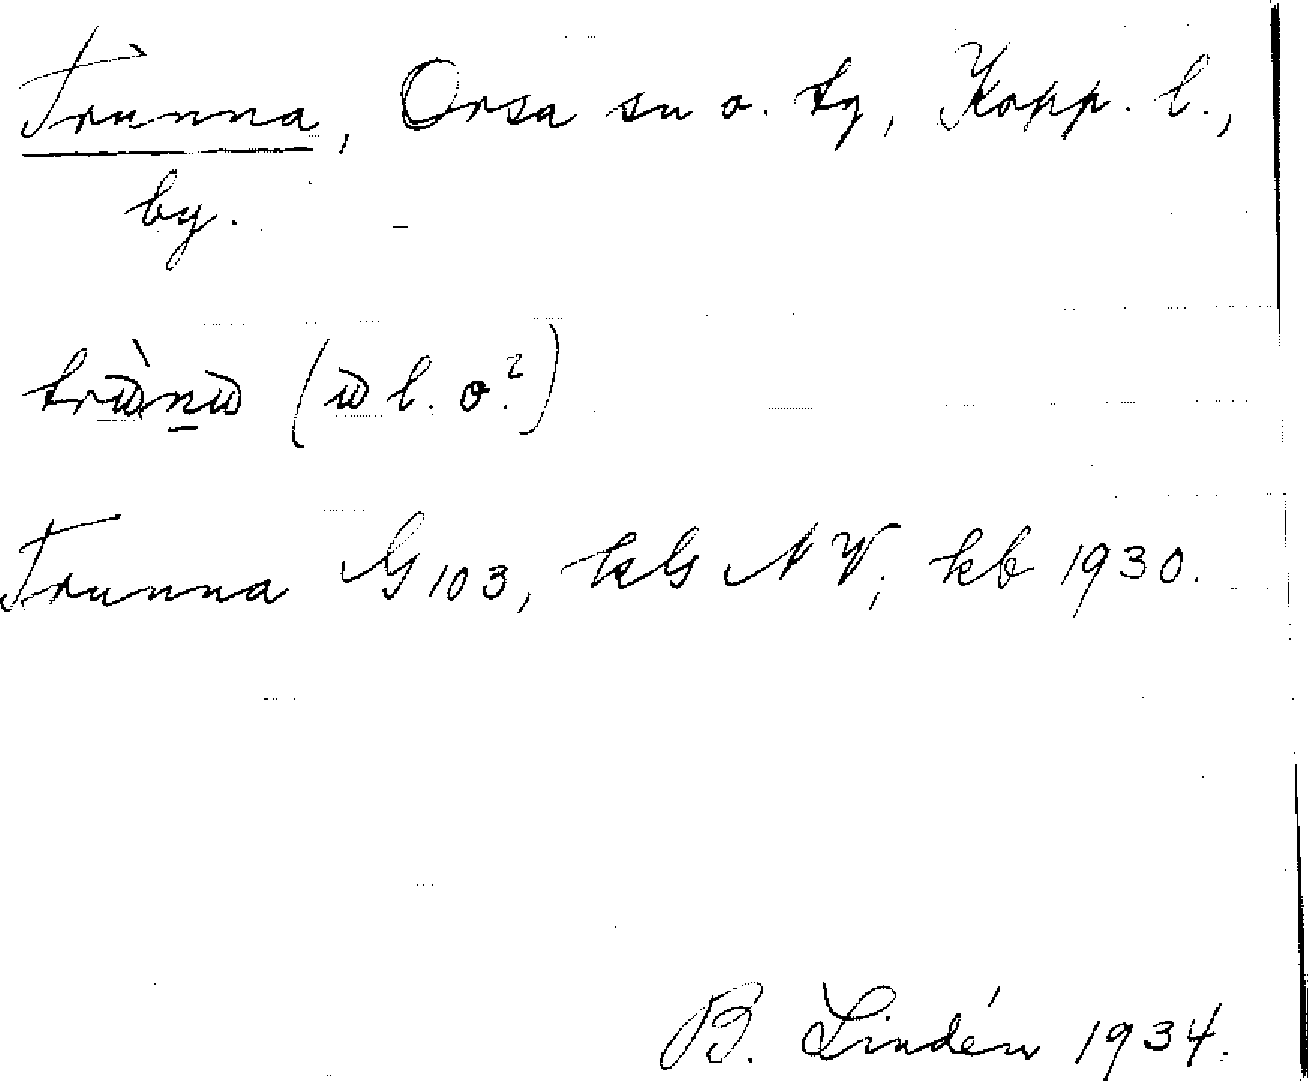 Trunna, Orsa sn o. tg, Kopp. l.,
by.
( l. o.?)
Trunna G 103, kls NV, kb 1930.
B. Lindén 1934.